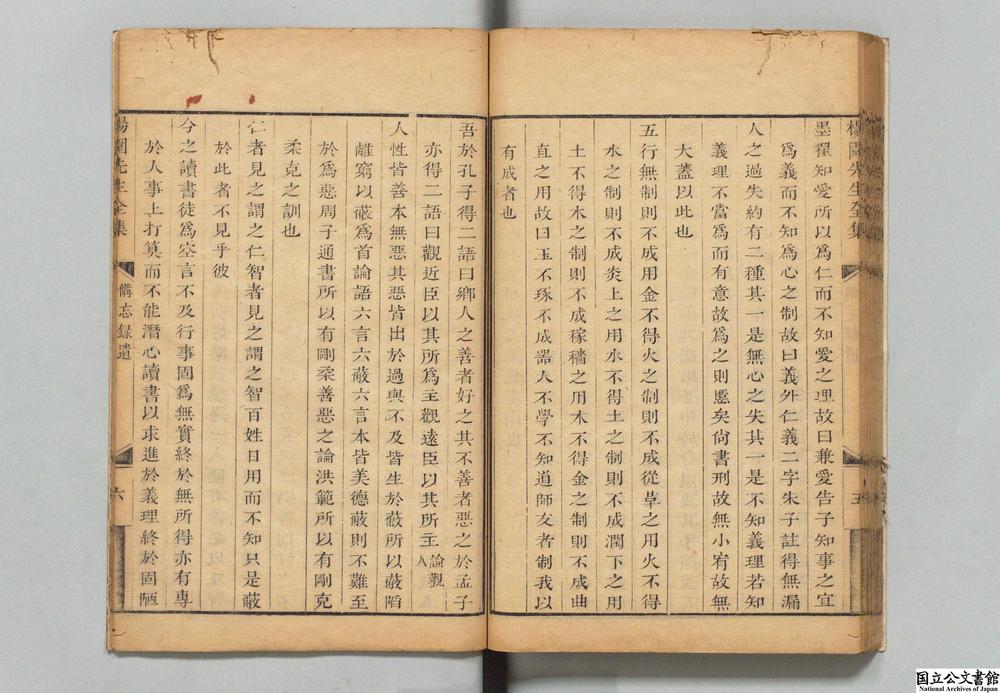 楊園先生全集
五
墨翟知愛所以爲仁而不知愛之理故曰兼愛告子知事之宜
爲義而不知爲心之制故曰義外仁義二字朱子註得無漏
人之過失約有二種其一是無心之失其一是不知義理若知
義理不當爲而有意故爲之則慝矣尙書刑故無小宥故無
大蓋以此也
五行無制則不成用金不得火之制則不成從革之用火不得
水之制則不成炎上之用水不得土之制則不成潤下之用
土不得木之制則不成稼穡之用木不得金之制則不成曲
直之用故曰玉不琢不成器人不學不知道師友者制我以
有成者也
吾於孔子得二語曰鄕人之善者好之其不善者惡之於孟子
亦得二語曰觀近臣以其所爲主觀遠臣以其所主論觀人
人性皆善本無惡其惡皆出於過與不及皆生於蔽所以蔽陷
離窮以蔽爲首論語六言六蔽六言本皆美德蔽則不難至
於爲惡周子通書所以有剛柔善惡之論洪範所以有剛克
柔克之訓也
仁者見之謂之仁智者見之謂之智百姓日用而不知只是蔽
於此者不見乎彼
今之讀書徒爲空言不及行事固爲無實終於無所得亦有專
於人事上打算而不能潛心讀書以求進於義理終於固陋
楊園先生全集
備忘錄遺
六
国立公文書館
National Archives of Japan